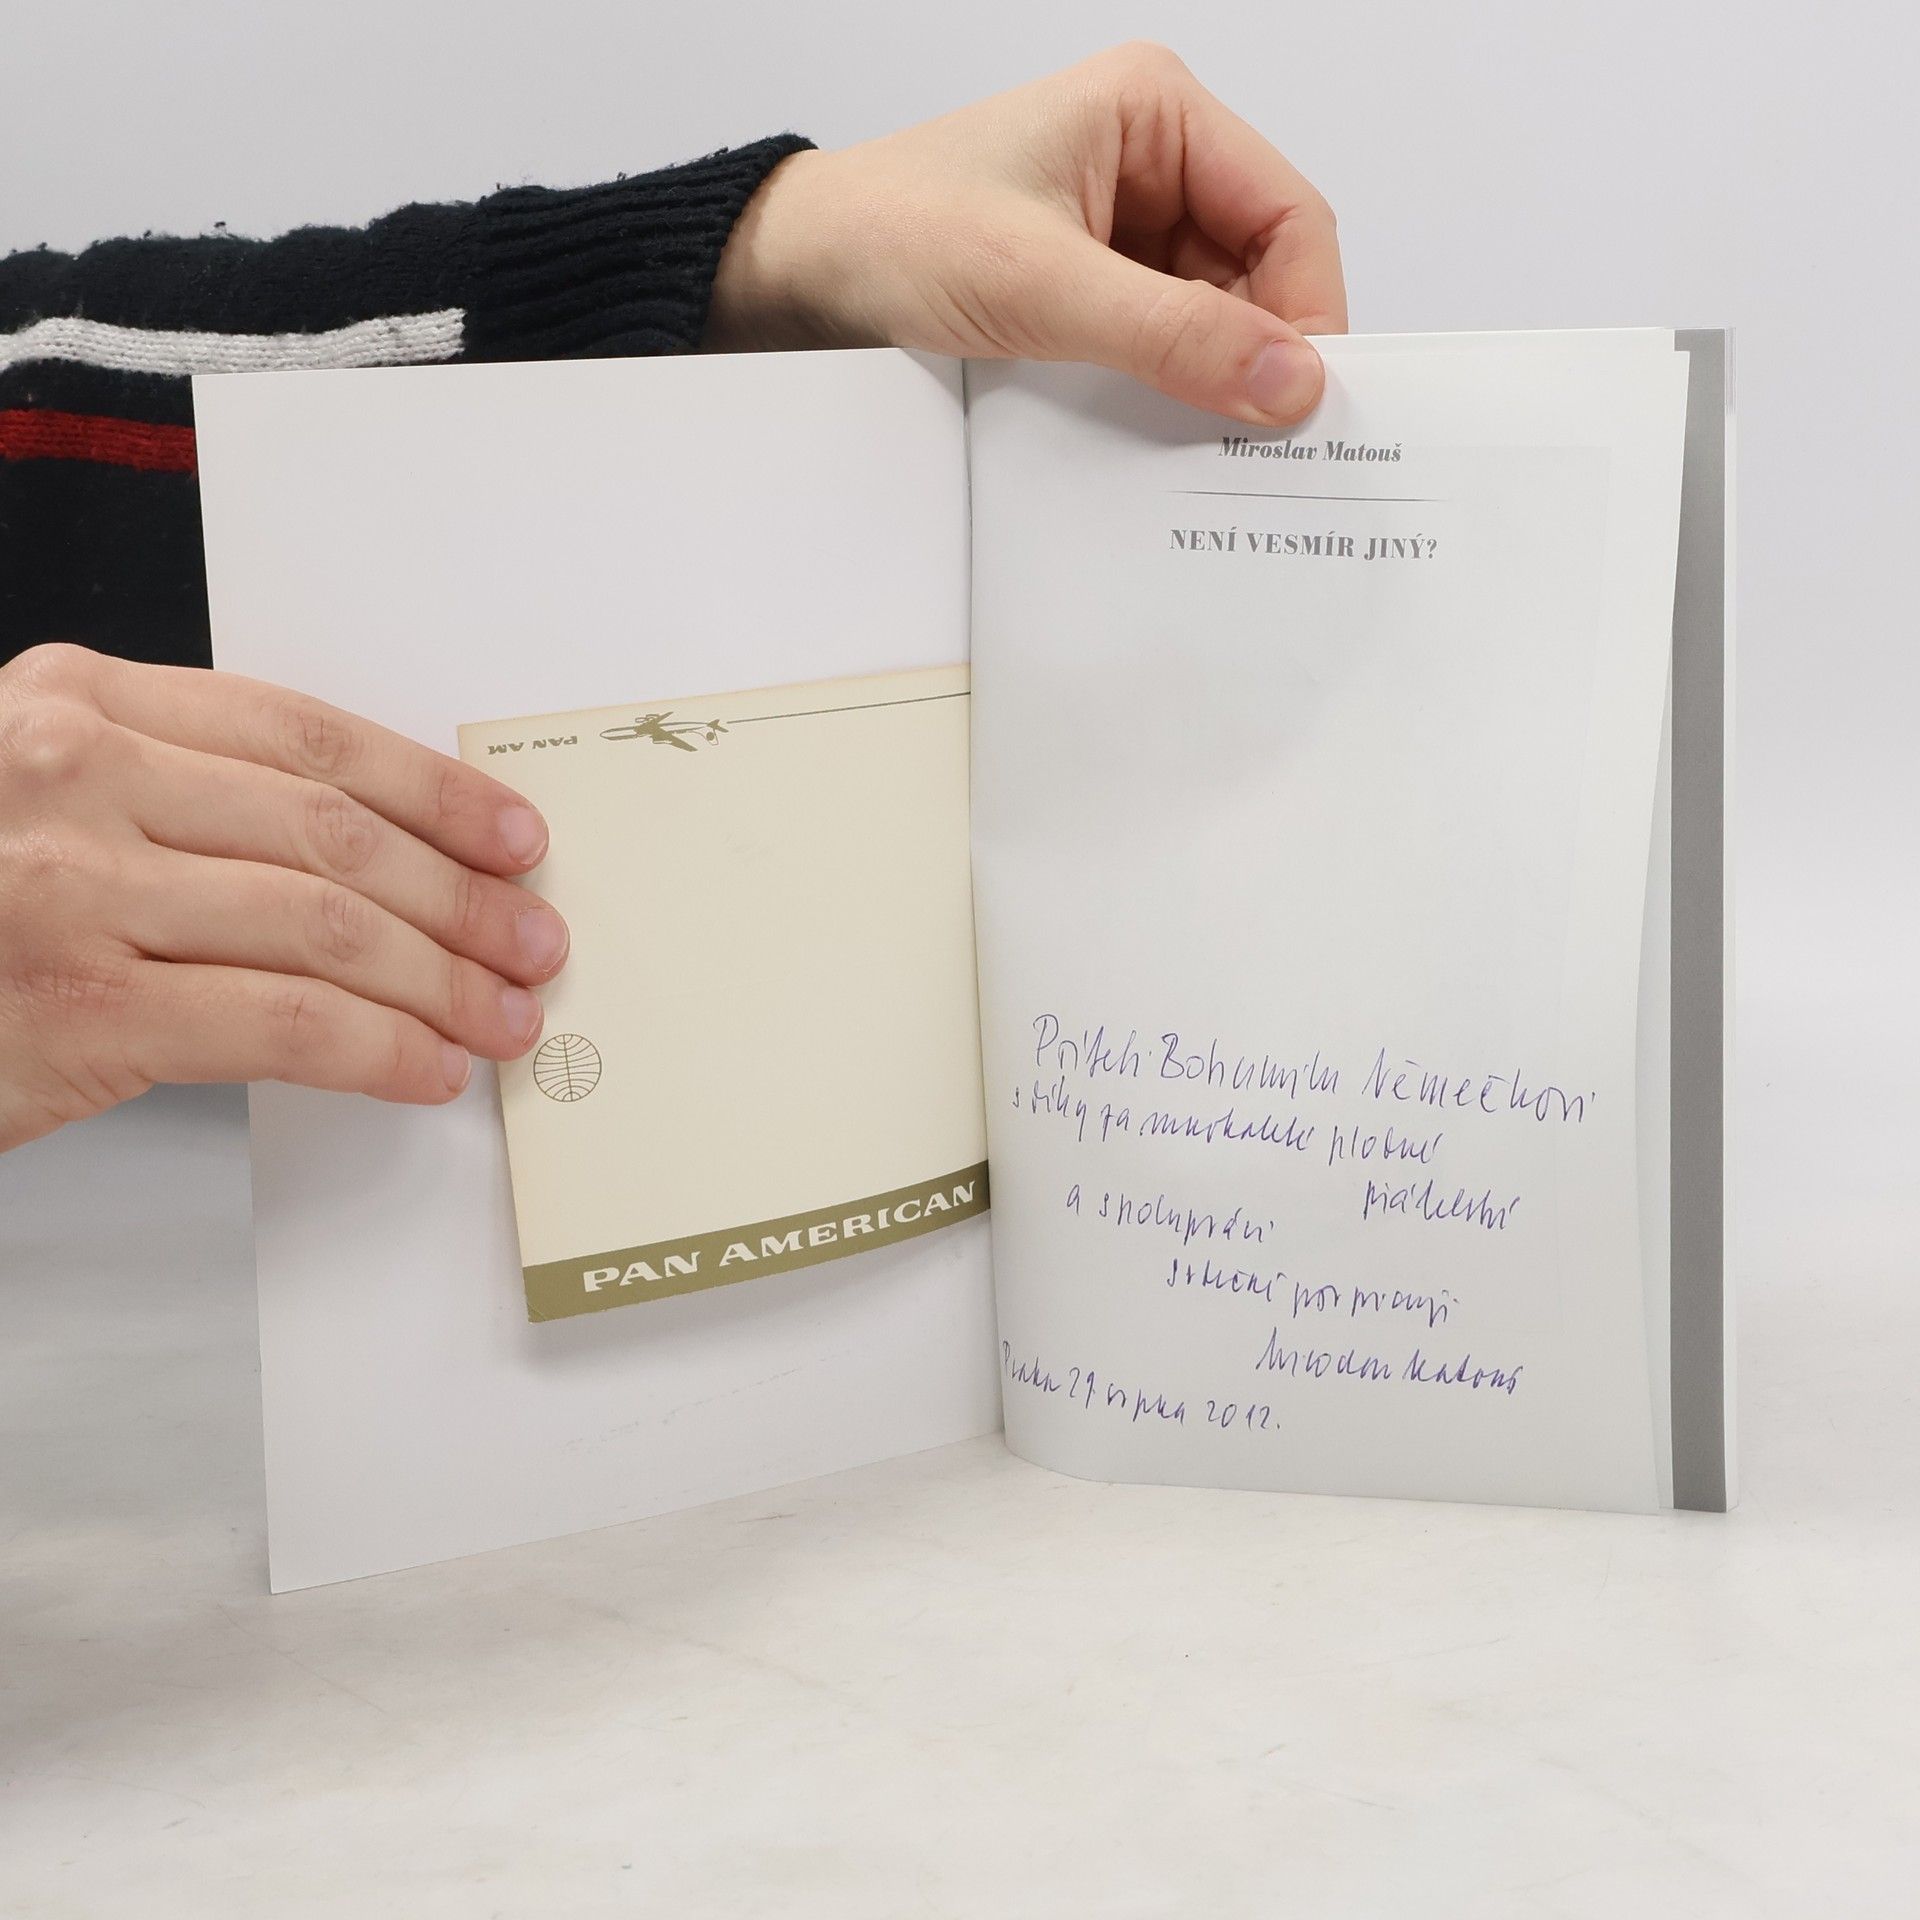 PAN AM
PAN AMERICAN
Miroslav Matouš
NENÍ VESMÍR JINÝ?
Příteli Bohumilu Němečkovi
s díky za mnohaleté plodné
přátelství
a spolupráci
srdečně
Miroslav Matouš
Praha 29. srpna 2012.